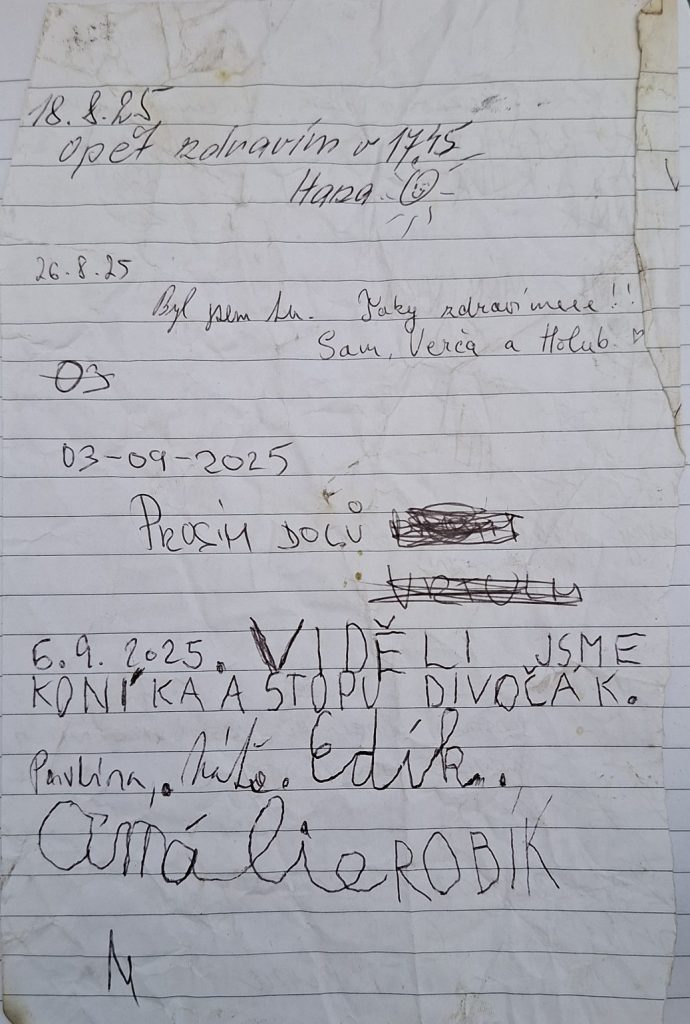 18.8.25
opět zdravím v 17.45
Hana
26.8.25
Byl jsem tu. Taky zdravímeee!!
Sam, Verča a Holub ♡
03
03-09-2025
PROSÍM DOLŮ
VRTULU
6.9.2025. VIDĚLI JSME
KONÍKA A STOPU DIVOČÁK.
Pavlína, Edík..
Amálie ROBÍK